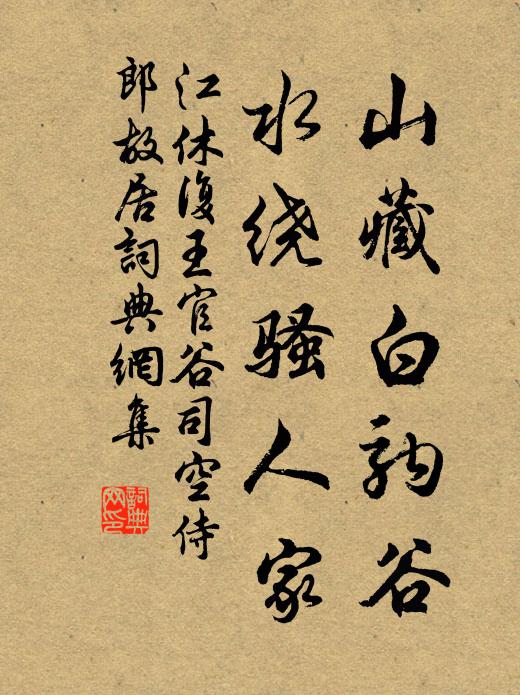 山藏白驹谷
水绕骚人家
江休復王官谷司空侍
郎故居詞典網集
詞典
网印